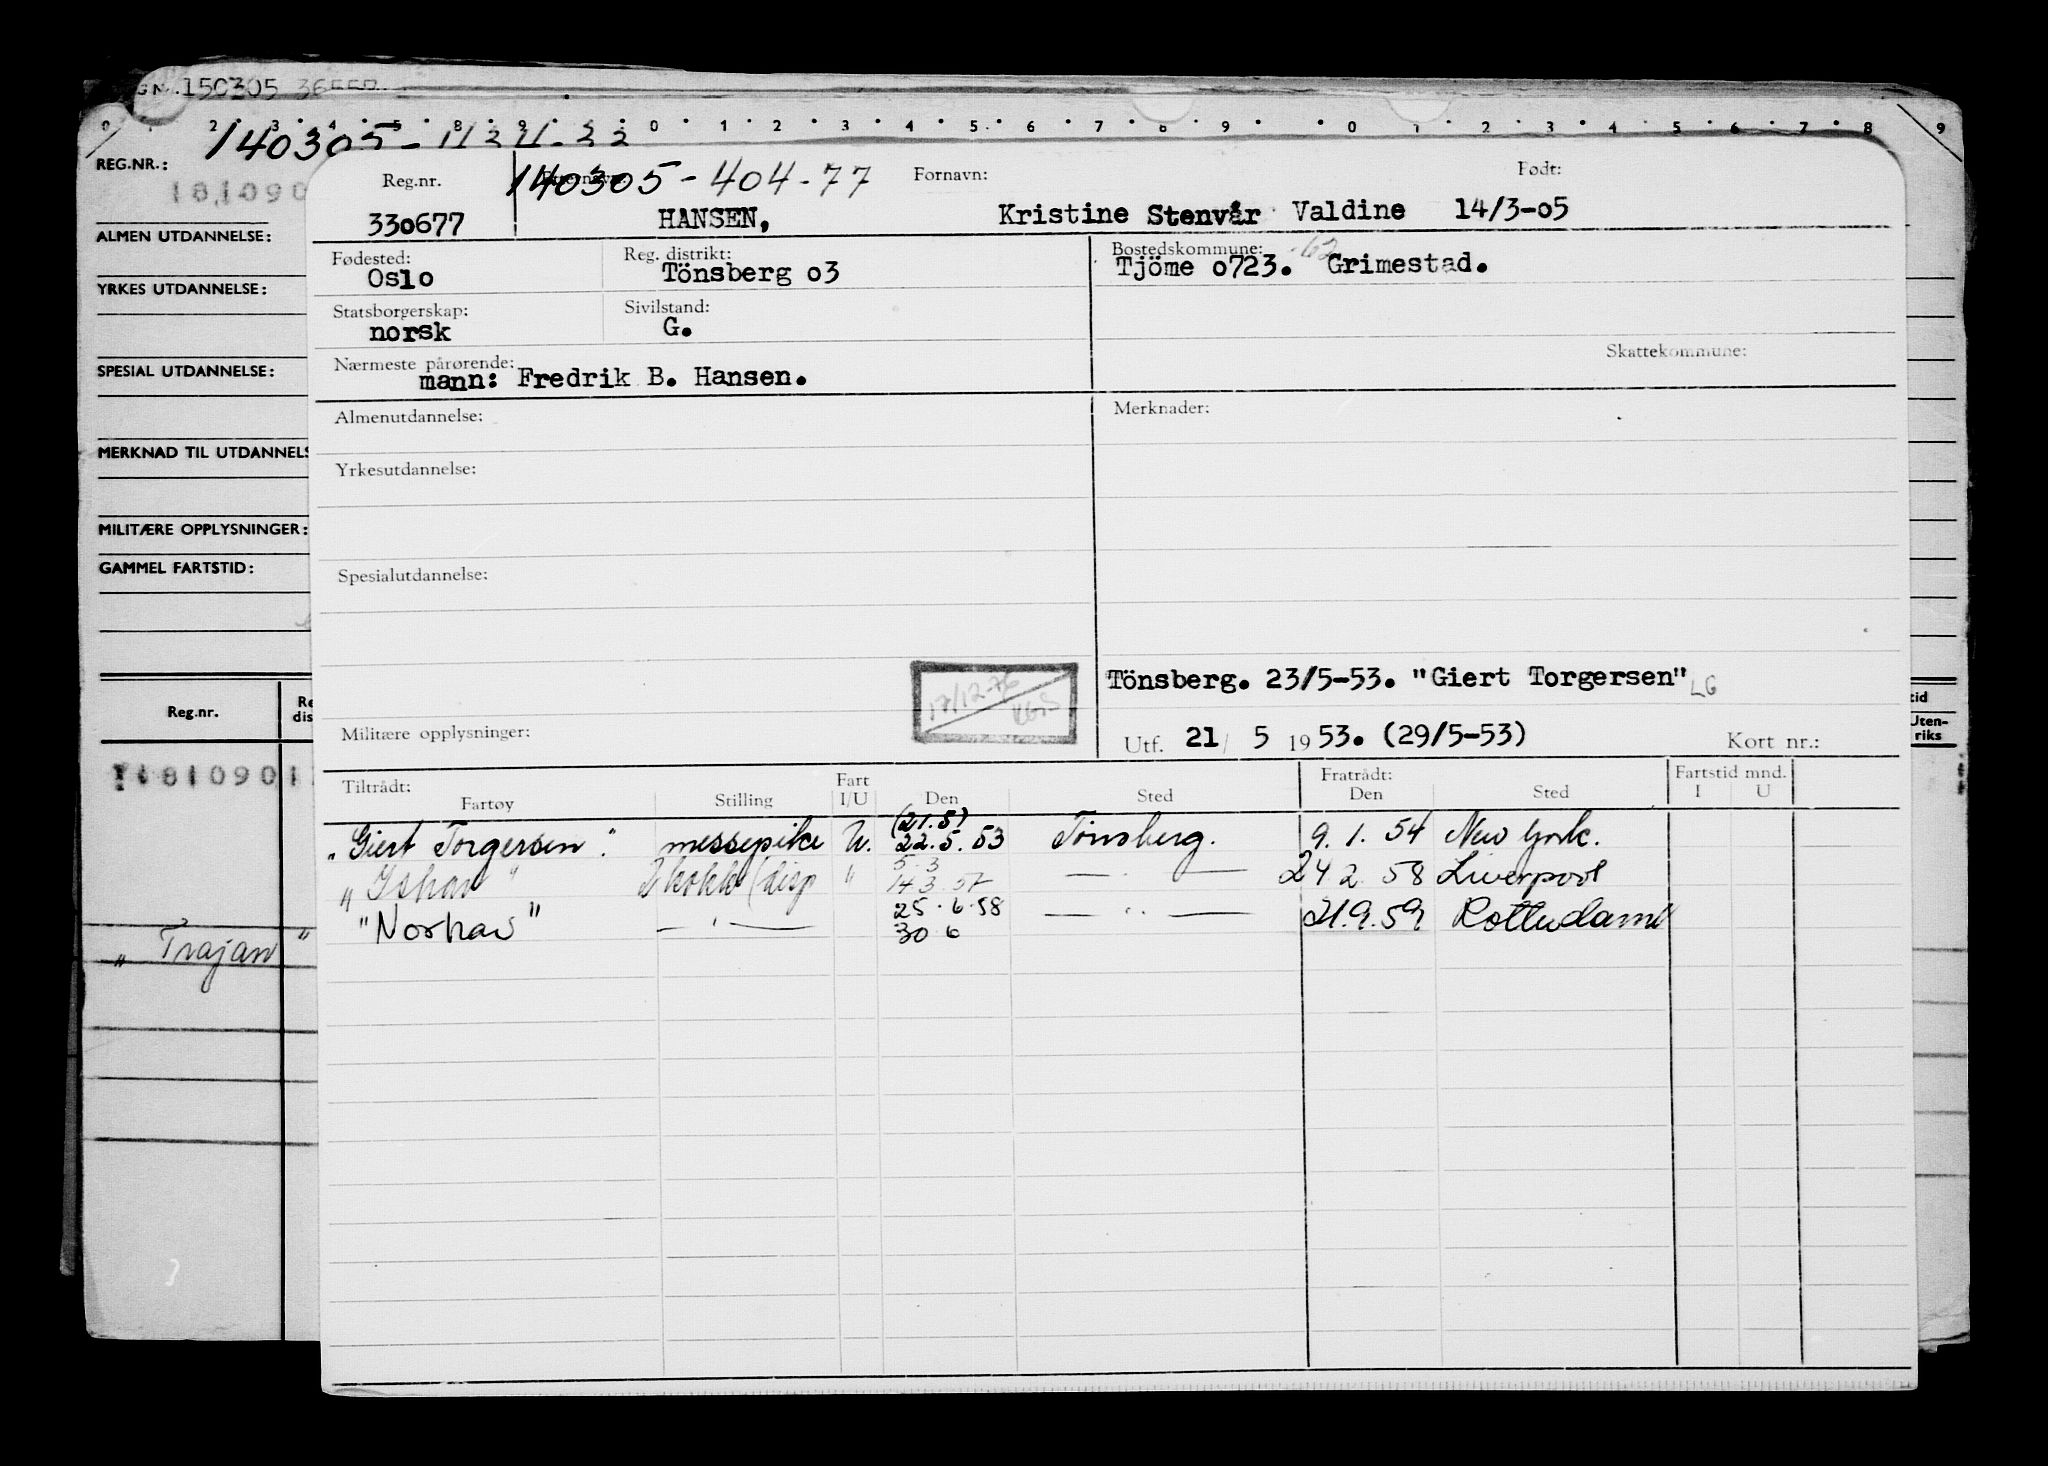 150305
0 1 2 3 4 5 8 9 0 1 2 3 4 5 6 7 8 9 0 1 2 3 4 5 6 7 8 9
REG.NR.: 140305-
181090
ALMEN UTDANNELSE:
YRKES UTDANNELSE:
SPECIAL UTDANNELSE:
MERKNAD TIL UTDANNELS
MILITÆRE OPPLYSNINGER:
GAMMEL FARTSTID:
Reg.nr. Re
dis
181090
„Trajan"
tid
Uten-
riks
Reg.nr. 140305-404-77 Fornavn: Født:
330677 HANSEN, Kristine Stenvår Valdine 14/3-05
Fødested: Reg. distrikt: Bostedskommune: -62
Oslo Tönsberg o3 Tjöme o723. Grimestad.
Statsborgerskap: Sivilstand:
norsk G.
Nærmeste pårørende: Skattekommune:
mann: Fredrik B. Hansen.
Almenutdannelse: Merknader:
Yrkesutdannelse:
Spesialutdannelse:
17/12-76
Tönsberg. 23/5-53. "Giert Torgersen" LG
Militære opplysninger: Utf. 21/ 5 1953. (29/5-53) Kort nr.:
Tiltrådt: Fart Fratrådt: Fartstid mnd.
Fartøy Stilling I/U Den Sted Den Sted I U
(21.5)
„Giert Torgersen". messepike U. 22.5.53 Tönsberg. 9.1.54 New York.
5.3
„Ishav" kokk (disp " 14 3.57 — . — 24 2 58 Liverpool
"Norhav" — " — 25.6.58 — " — 21.9.59 Rotterdam
30 6